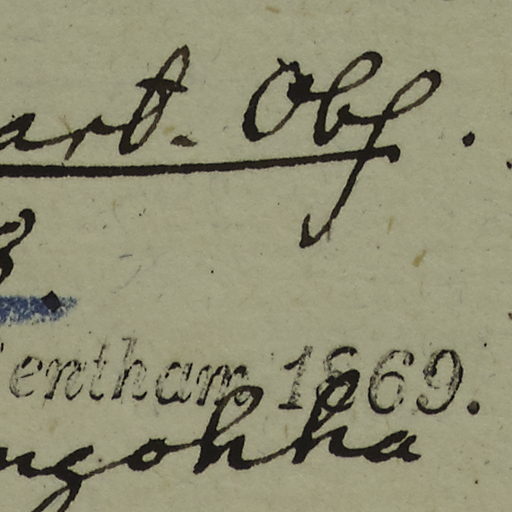 art. Obs.
3.
entham, 1869.
ngohha